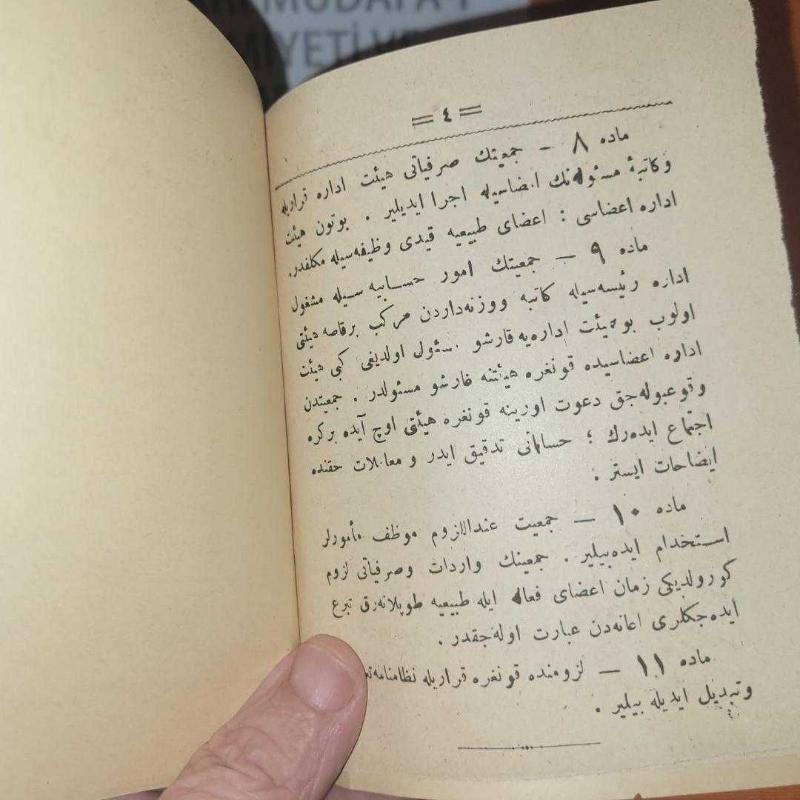 MÜDAFA-İ
MİYETİ VE
= ٤ =
ماده ٨ — جمعیتك صرفیاتی هیئت اداره قراریله
وكاتبهٔ مسئوله‌نك امضاسیله اجرا ایدیلیر . بوتون هیئت
اداره اعضاسی : اعضای طبیعیه قیدی وظیفه‌سیله مكلفدر.
ماده ٩ — جمعیتك امور حسابیه سیله مشغول
اداره رئیسه‌سیله كاتبه ووزنه‌داردن مركب برقاصه هیئتی
اولوب بو هیئت اداره‌یه قارشو مسئول اولدیغی كبی هیئت
اداره اعضاسیده قونغره هیئتنه قارشو مسئولدر . جمعیتدن
وقوعبوله‌جق دعوت اورینه قونغره هیئتی اوچ آیده بركره
اجتماع ایده‌رك ؛ حساباتی تدقیق ایدر و معاملات حقنده
ایضاحات ایستر .
ماده ١٠ — جمعیت عنداللزوم موظف مأمورلر
استخدام ایده‌بیلیر . جمعیتك واردات وصرفیاتی لزوم
كورولدیكی زمان اعضای فعاله ایله طبیعیه طوپلانه‌رق تبرع
ایده‌جكلری اعانه‌دن عبارت اوله‌جقدر .
ماده ١١ — لزومنده قونغره قراریله
وتبدیل ایدیله بیلیر .